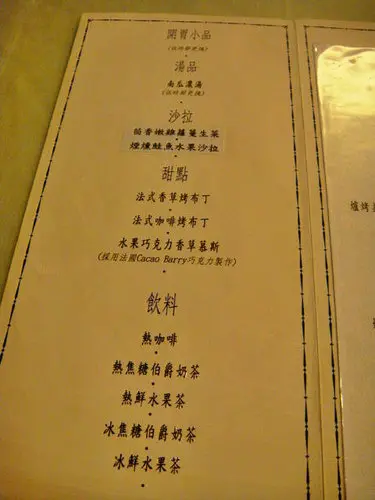 開胃小品
(依時節更換)
湯品
南瓜濃湯
(依時節更換)
沙拉
茴香嫩雞蘿蔓生菜
煙燻鮭魚水果沙拉
甜點
法式香草烤布丁
法式咖啡烤布丁
水果巧克力香草慕斯
(採用法國Cacao Barry巧克力製作)
飲料
熱咖啡
熱焦糖伯爵奶茶
熱鮮水果茶
冰焦糖伯爵奶茶
冰鮮水果茶
爐烤